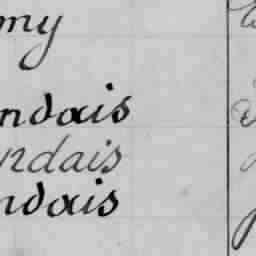 my
ndais
ndais
ndais